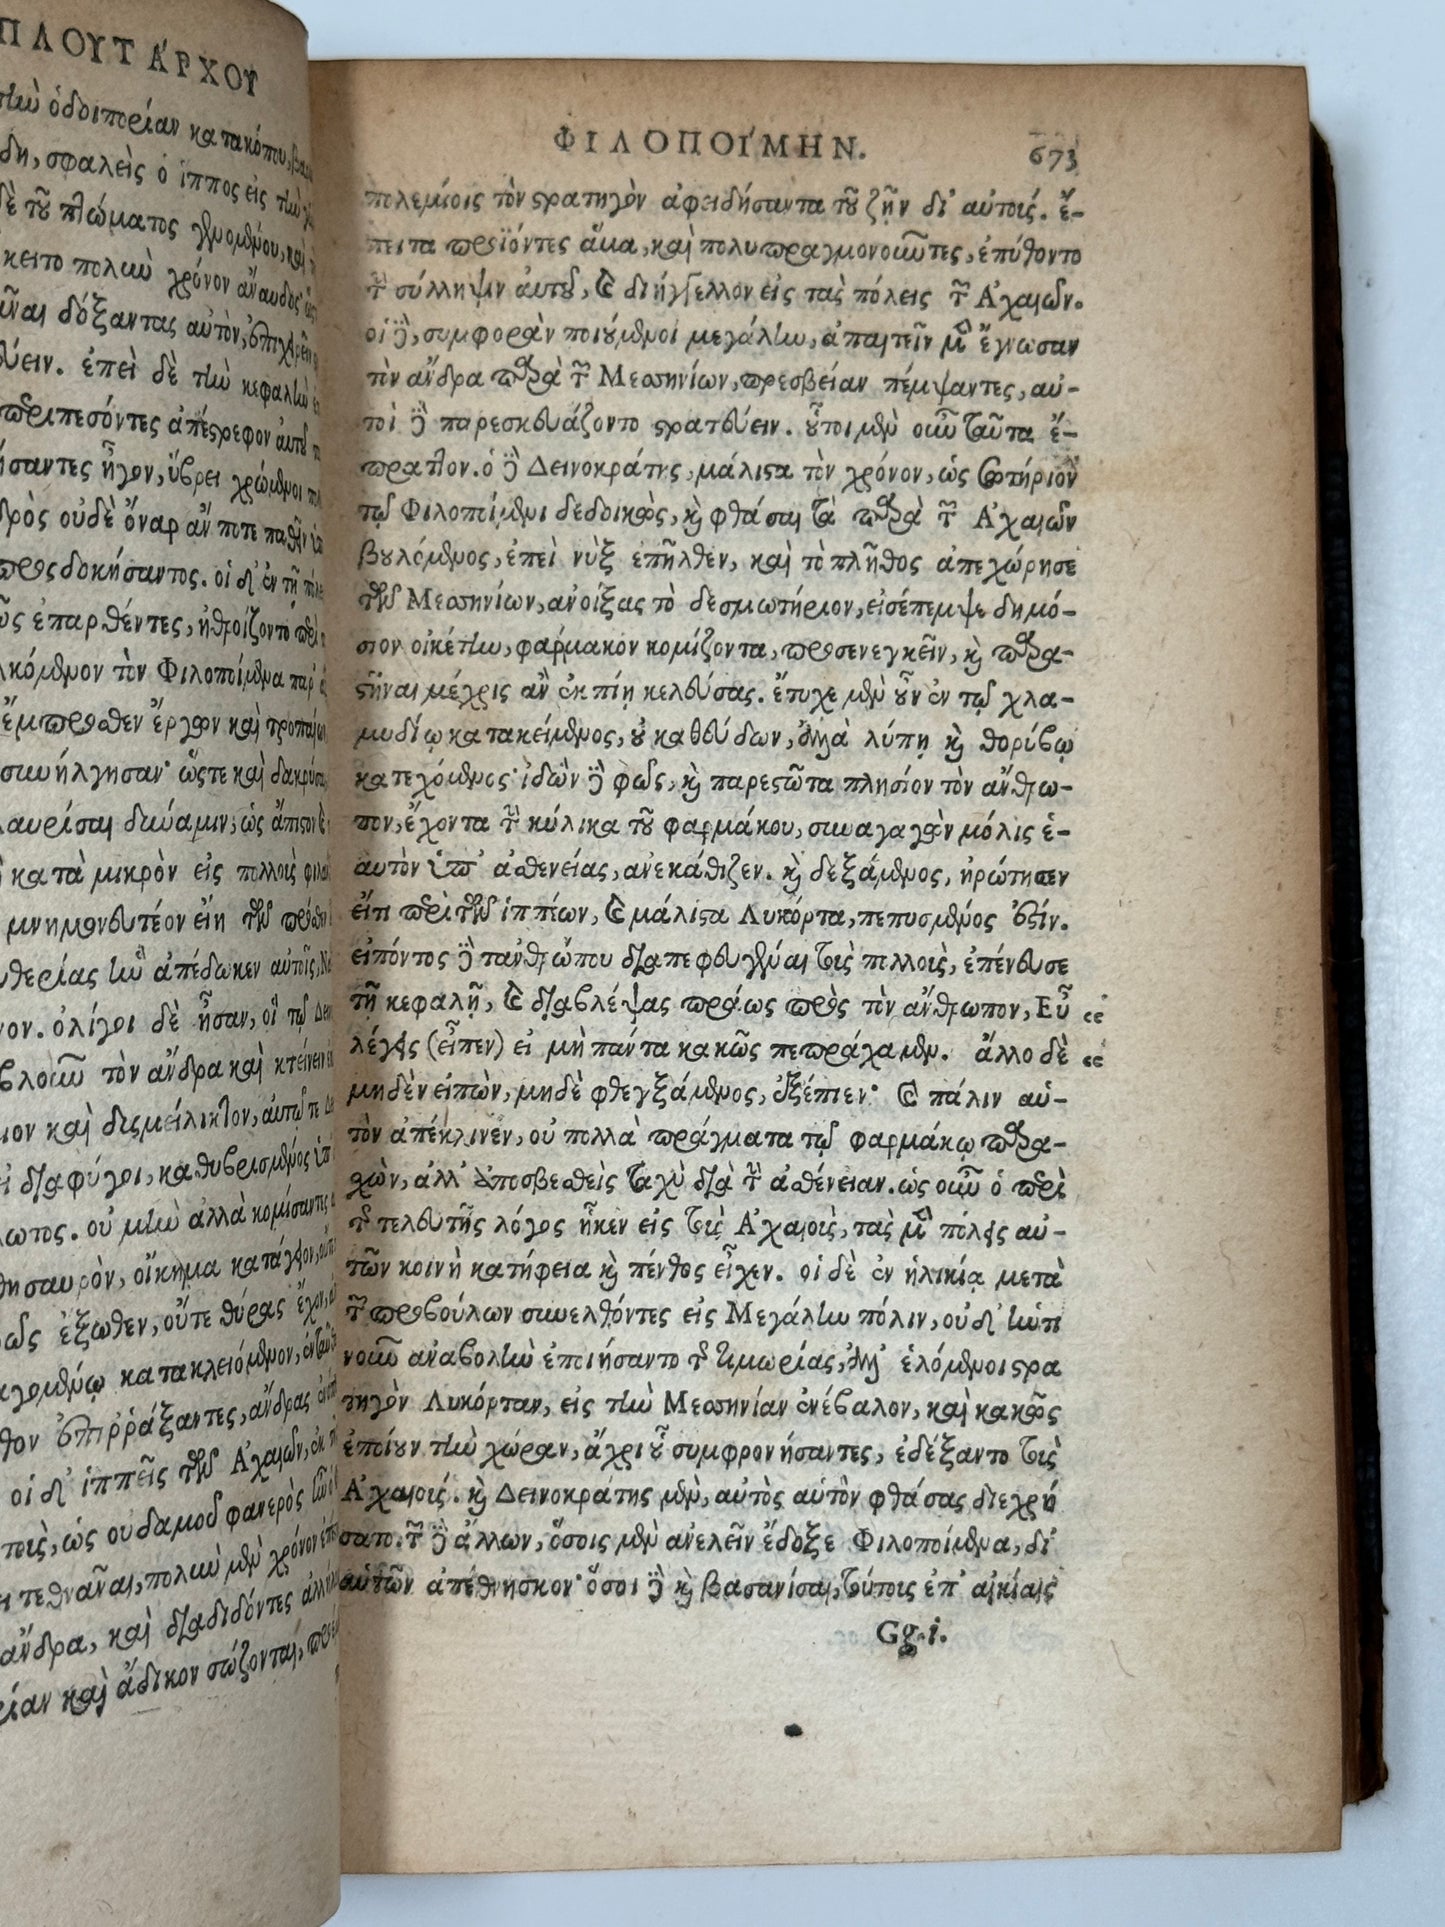 ΠΛΟΥΤΑΡΧΟΥ
τὴν ὁδοιπορίαν κατακόπου,
δη, σφαλεὶς ὁ ἵππος εἰς τὴν
δὲ τοῦ πτώματος γενομένου, καὶ
κειτο πολὺν χρόνον ἄναυδος
δόξαντας αὐτὸν, ἐπιχειρεῖν
ύειν. ἐπεὶ δὲ τὴν κεφαλὴν
περιπεσόντες ἀπέστρεφον αὐτοῦ
σαντες ἦγον, ὕβρει χρώμενοι
δρὸς οὐδὲ ὄναρ ἄν ποτε παθεῖν
προςδοκήσαντος. οἱ δ' ἐν τῇ
ῶς ἐπαρθέντες, ἠθροίζοντο περὶ
λκόμενον τὸν Φιλοποίμενα παρ'
ἔμπροσθεν ἔργων καὶ τροπαίων
συνήλγησαν· ὥςτε καὶ δακρύσαι
αυρίσαι δύναμιν, ὡς ἄπιστον
κατὰ μικρὸν εἰς πολλοὺς
μνημονευτέον εἴη τῶν
υθερίας ἣν ἀπέδωκεν αὐτοῖς,
νον. ὀλίγοι δὲ ἦσαν, οἳ τῷ
βλοῦν τὸν ἄνδρα καὶ κτείνειν
ιον καὶ δυςμείλικτον, αὐτῷ τε
εἰ διαφύγοι, καθυβρισμένος
λωτος. οὐ μὴν ἀλλὰ κομίσαντες
θησαυρὸν, οἴκημα κατάγειον,
ῶς ἔξωθεν, οὔτε θύρας ἔχον,
αγομένῳ κατακλειόμενον, ἐνταῦθα
θον ἐπιῤῥάξαντες, ἄνδρας
οἱ δ' ἱππεῖς τῶν Ἀχαιῶν, ἐκ
τοις, ὡς οὐδαμοῦ φανερὸς
ι τεθνᾶναι, πολὺν μὲν χρόνον
ἄνδρα, καὶ διαδιδόντες
ρίαν καὶ ἄδικον σώζονται,
ΦΙΛΟΠΟΙΜΗΝ. 673
πολεμίοις τὸν στρατηγὸν ἀφειδήσαντα τοῦ ζῇν δι' αὐτούς. ἔ-
πειτα προϊόντες ἅμα, καὶ πολυπραγμονοῦντες, ἐπύθοντο
τὴν σύλληψιν αὐτοῦ, καὶ διήγγελλον εἰς τὰς πόλεις τῶν Ἀχαιῶν.
οἱ δὲ, συμφορὰν ποιούμενοι μεγάλην, ἀπαιτεῖν μὲν ἔγνωσαν
τὸν ἄνδρα παρὰ τῶν Μεσσηνίων, πρεσβείαν πέμψαντες, αὐ-
τοὶ δὲ παρεσκευάζοντο στρατεύειν. οὗτοι μὲν οὖν ταῦτα ἔ-
πραττον. ὁ δὲ Δεινοκράτης, μάλιστα τὸν χρόνον, ὡς σωτήριον
τῷ Φιλοποίμενι δεδοικὼς, καὶ φθάσαι τὰ παρὰ τῶν Ἀχαιῶν
βουλόμενος, ἐπεὶ νὺξ ἐπῆλθεν, καὶ τὸ πλῆθος ἀπεχώρησε
τῶν Μεσσηνίων, ἀνοίξας τὸ δεσμωτήριον, εἰσέπεμψε δημό-
σιον οἰκέτην, φάρμακον κομίζοντα, προσενεγκεῖν, καὶ παρα-
στῆναι μέχρις ἂν ἐκπίῃ κελεύσας. ἔτυχε μὲν οὖν ἐν τῷ χλα-
μυδίῳ κατακείμενος, οὐ καθεύδων, ἀλλὰ λύπῃ καὶ θορύβῳ
κατεχόμενος· ἰδὼν δὲ φῶς, καὶ παρεστῶτα πλησίον τὸν ἄνθρω-
πον, ἔχοντα τὴν κύλικα τοῦ φαρμάκου, συναγαγὼν μόλις ἑ-
αυτὸν ὑπ' ἀσθενείας, ἀνεκάθιζεν. καὶ δεξάμενος, ἠρώτησεν
εἴ τι περὶ τῶν ἱππέων, καὶ μάλιστα Λυκόρτα, πεπυσμένος ἐστίν.
εἰπόντος δὲ τἀνθρώπου διαπεφευγέναι τοὺς πολλοὺς, ἐπένευσε
τῇ κεφαλῇ, καὶ διαβλέψας πράως πρὸς τὸν ἄνθρωπον, Εὖ “
λέγεις (εἶπεν) εἰ μὴ πάντα κακῶς πεπράχαμεν. ἄλλο δὲ “
μηδὲν εἰπὼν, μηδὲ φθεγξάμενος, ἐξέπιεν· καὶ πάλιν αὑ-
τὸν ἀπέκλινεν, οὐ πολλὰ πράγματα τῷ φαρμάκῳ παρα-
σχὼν, ἀλλ' ἀποσβεσθεὶς ταχὺ διὰ τὴν ἀσθένειαν. ὡς οὖν ὁ περὶ
τῆς τελευτῆς λόγος ἧκεν εἰς τοὺς Ἀχαιοὺς, τὰς μὲν πόλεις αὐ-
τῶν κοινὴ κατήφεια καὶ πένθος εἶχεν. οἱ δὲ ἐν ἡλικίᾳ μετὰ
τῶν προβούλων συνελθόντες εἰς Μεγάλην πόλιν, οὐδ' ἡντι
νοῦν ἀναβολὴν ἐποιήσαντο τῆς τιμωρίας, ἀλλ' ἑλόμενοι στρα
τηγὸν Λυκόρταν, εἰς τὴν Μεσσηνίαν ἐνέβαλον, καὶ κακῶς
ἐποίουν τὴν χώραν, ἄχρι οὗ συμφρονήσαντες, ἐδέξαντο τοὺς
Ἀχαιούς. καὶ Δεινοκράτης μὲν, αὐτὸς αὑτὸν φθάσας διεχρή
σατο. τῶν δὲ ἄλλων, ὅσοις μὲν ἀνελεῖν ἔδοξε Φιλοποίμενα, δι'
αὑτῶν ἀπέθνησκον· ὅσοι δὲ καὶ βασανίσαι, τούτους ἐπ' αἰκίαις
Gg.i.